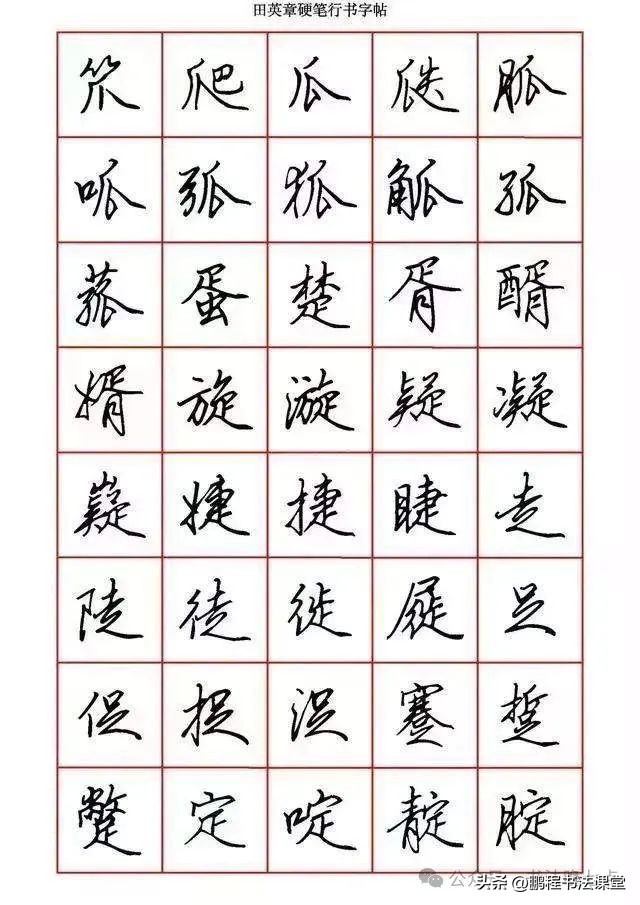 田英章硬笔行书字帖
笊 爬 瓜 瓞 胍
呱 弧 狐 觚 孤
菰 蛋 楚 胥 醑
婿 旋 漩 疑 凝
嶷 婕 捷 睫 走
陡 徒 徙 屣 足
促 捉 浞 蹇 踅
蹩 定 啶 靛 腚
头条@鹏程书法课堂